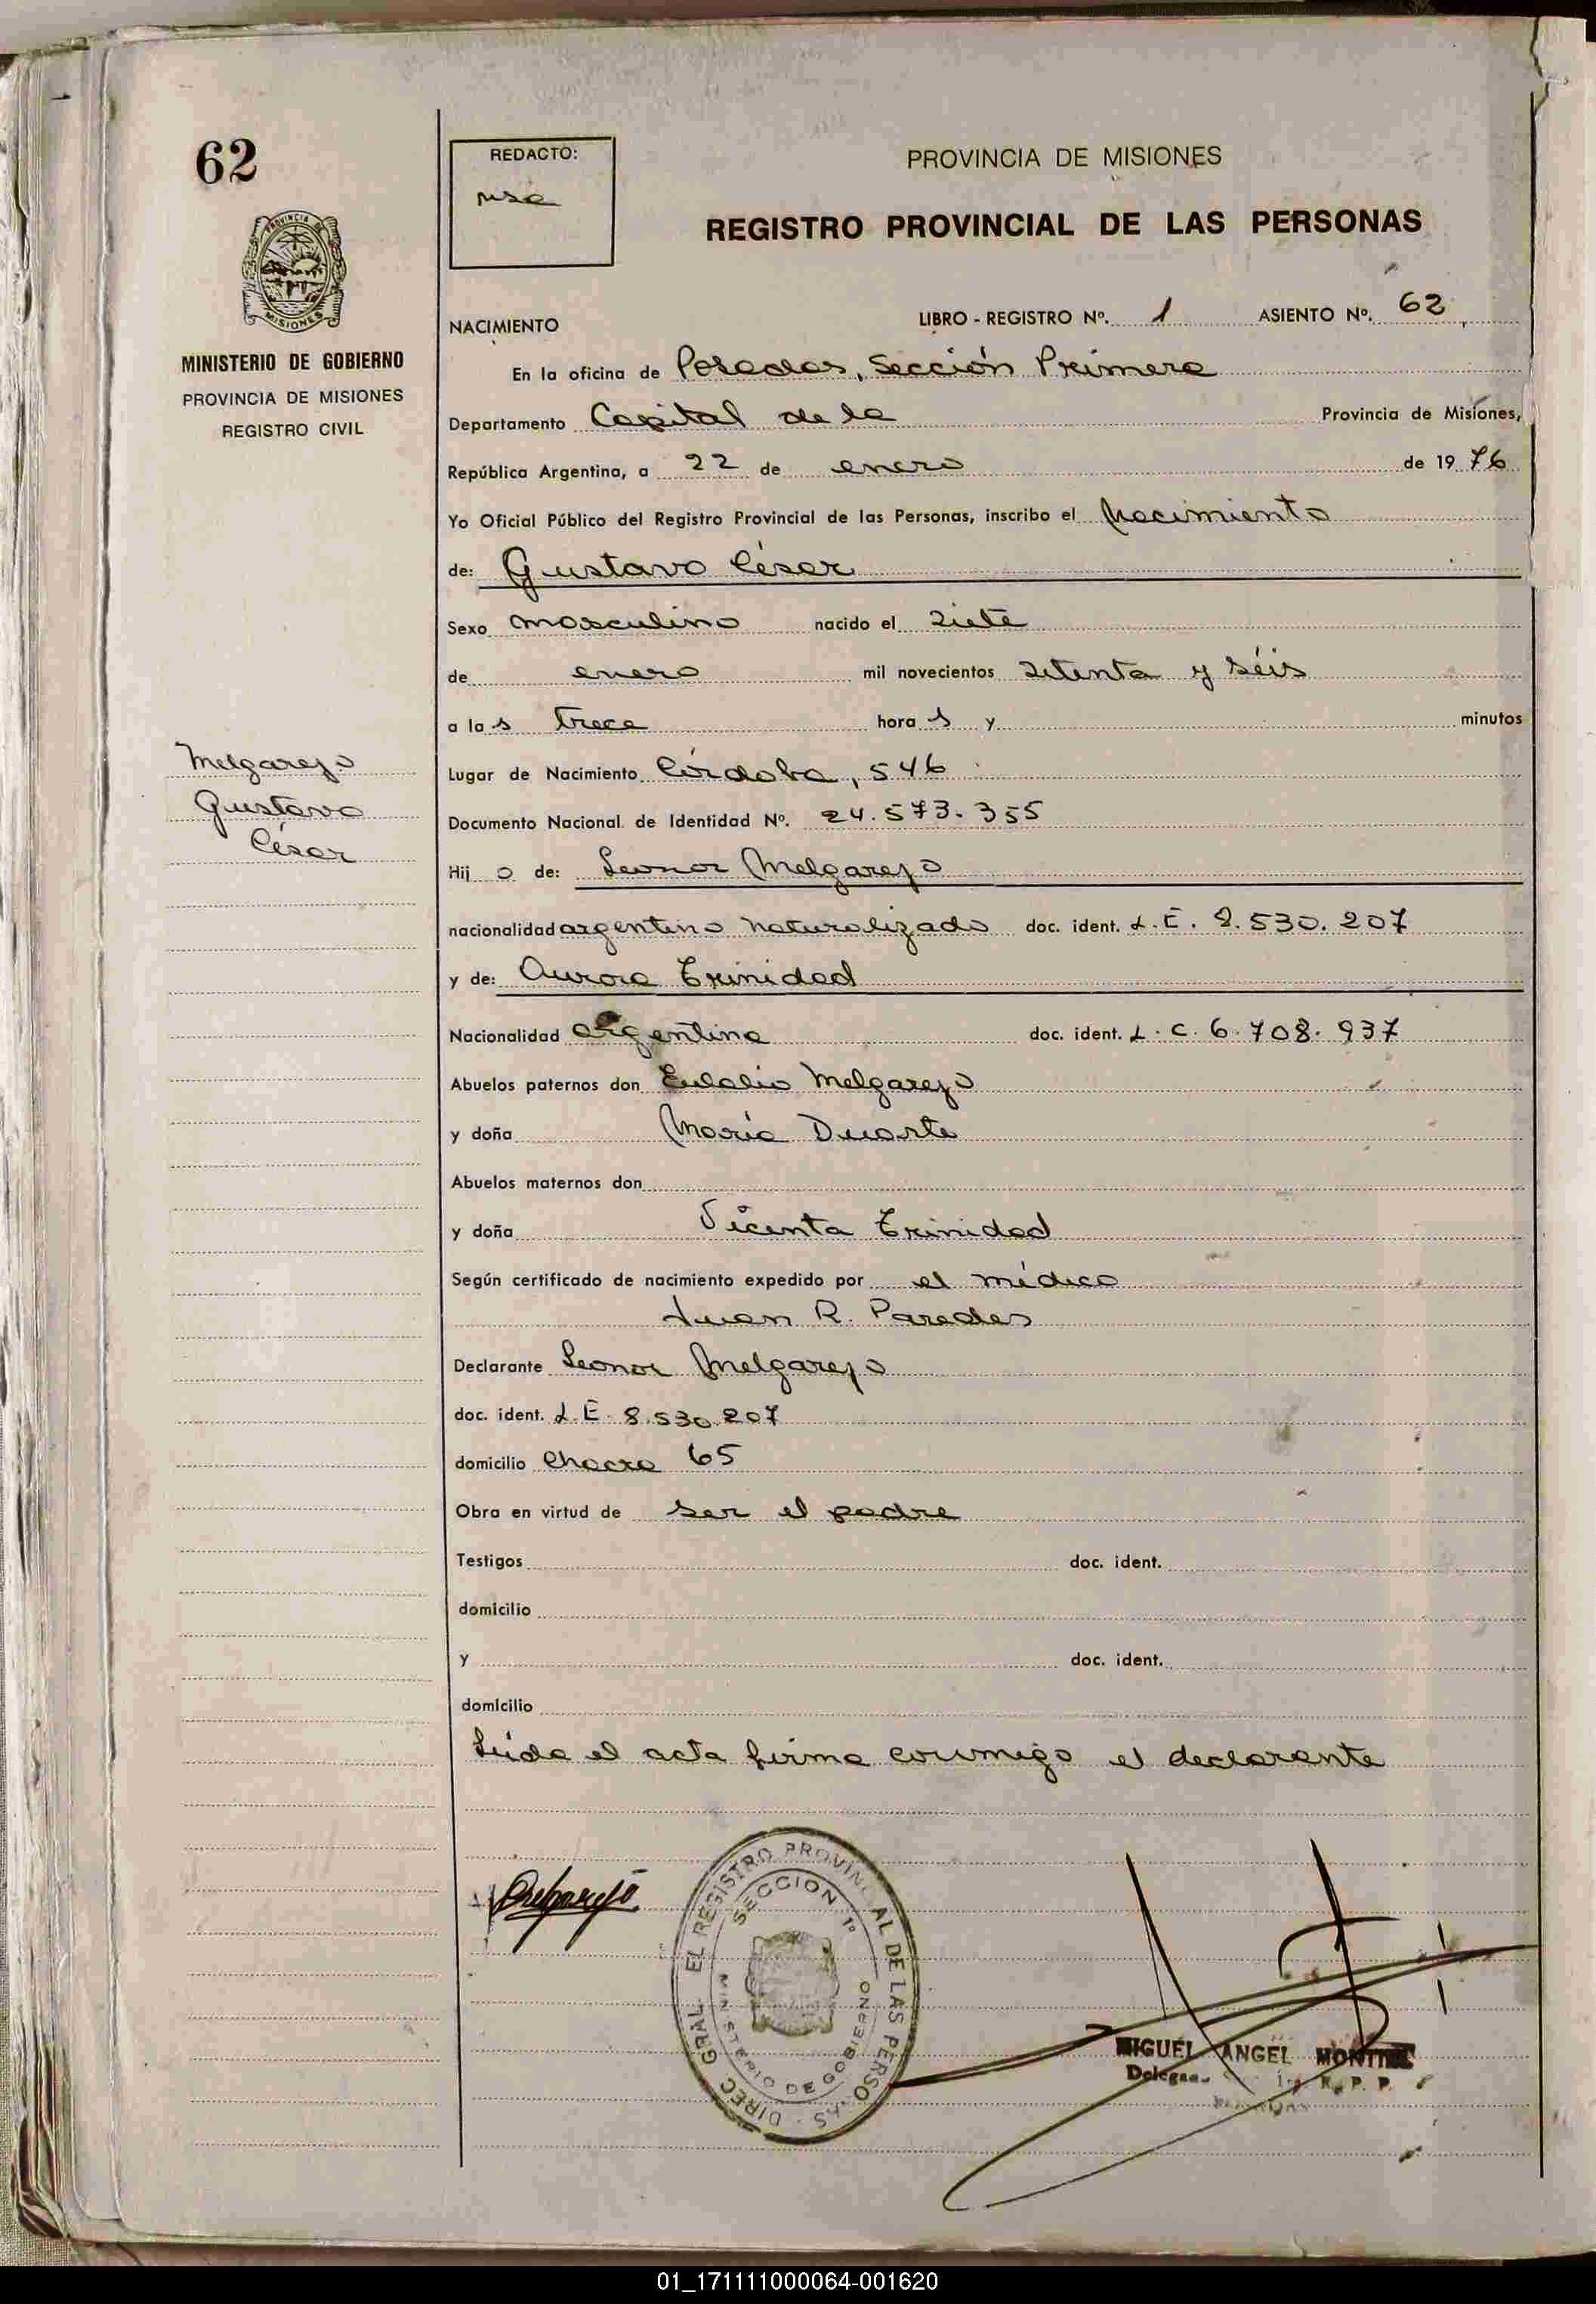 62
PROVINCIA
MISIONES
MINISTERIO DE GOBIERNO
PROVINCIA DE MISIONES
REGISTRO CIVIL
Melgarejo
Gustavo
César
REDACTO:
PROVINCIA DE MISIONES
REGISTRO PROVINCIAL DE LAS PERSONAS
NACIMIENTO LIBRO - REGISTRO Nº. 1 ASIENTO Nº. 62
En la oficina de Posadas, Sección Primera
Departamento Capital de la Provincia de Misiones,
República Argentina, a 22 de enero de 1976
Yo Oficial Público del Registro Provincial de las Personas, inscribo el Nacimiento
de: Gustavo César
Sexo masculino nacido el siete
de enero mil novecientos setenta y séis
a las trece horas y minutos
Lugar de Nacimiento Córdoba, 546
Documento Nacional de Identidad Nº. 24.573.355
Hijo de: Leonor Melgarejo
nacionalidad argentino naturalizado doc. ident. L.E. 8.530.207
y de: Aurora Trinidad
Nacionalidad argentina doc. ident. L.C. 6.708.937
Abuelos paternos don Eulalio Melgarejo
y doña María Duarte
Abuelos maternos don
y doña Vicenta Trinidad
Según certificado de nacimiento expedido por el médico
Juan R. Paredes
Declarante Leonor Melgarejo
doc. ident. L.E. 8.530.207
domicilio Chacra 65
Obra en virtud de ser el padre
Testigos doc. ident.
domicilio
y doc. ident.
domicilio
Leída el acta firma conmigo el declarante
Melgarejo
DIREC. GRAL. EL REGISTRO PROVINCIAL DE LAS PERSONAS
SECCION 1º
MINISTERIO DE GOBIERNO
MIGUEL ANGEL
R. P. P.
01_171111000064-001620